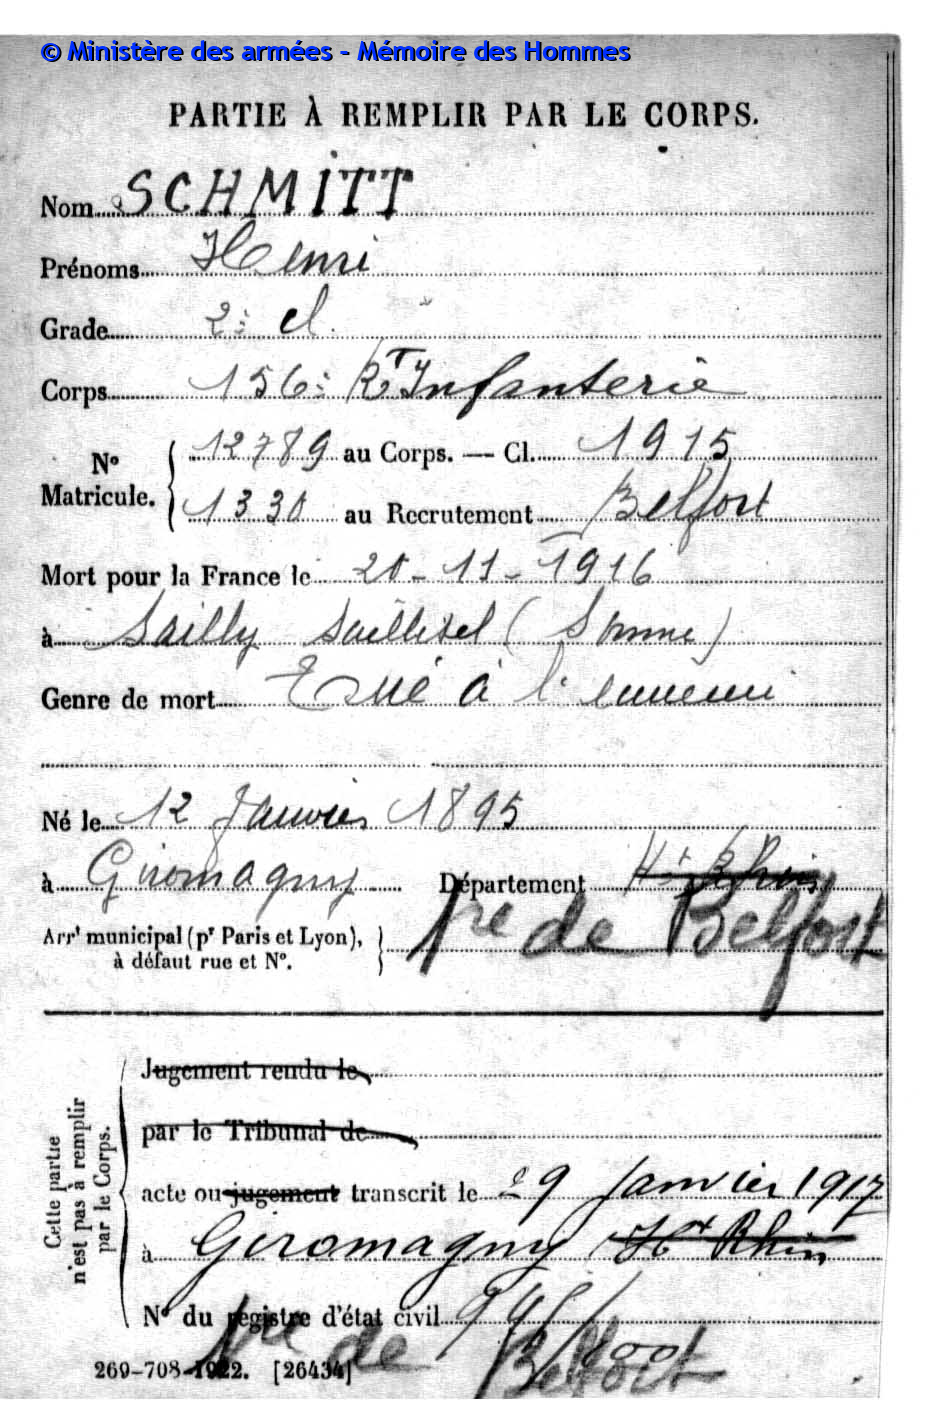 © Ministère des armées - Mémoire des Hommes
PARTIE À REMPLIR PAR LE CORPS.
Nom SCHMITT
Prénoms Henri
Grade 2e cl.
Corps 156e Rt Infanterie
No Matricule. 12789 au Corps. — Cl. 1915
1330 au Recrutement Belfort
Mort pour la France le 20-11-1916
à Sailly Saillisel (Somme)
Genre de mort Tué à l'ennemi
Né le 12 Janvier 1895
à Giromagny Département Ht Rhin
Arrt municipal (pr Paris et Lyon), à défaut rue et No. Tre de Belfort
Cette partie n'est pas à remplir par le Corps.
Jugement rendu le
par le Tribunal de
acte ou jugement transcrit le 29 Janvier 1917
à Giromagny Ht Rhin
No du registre d'état civil
Tre de Belfort
269-708-1922. [26434]